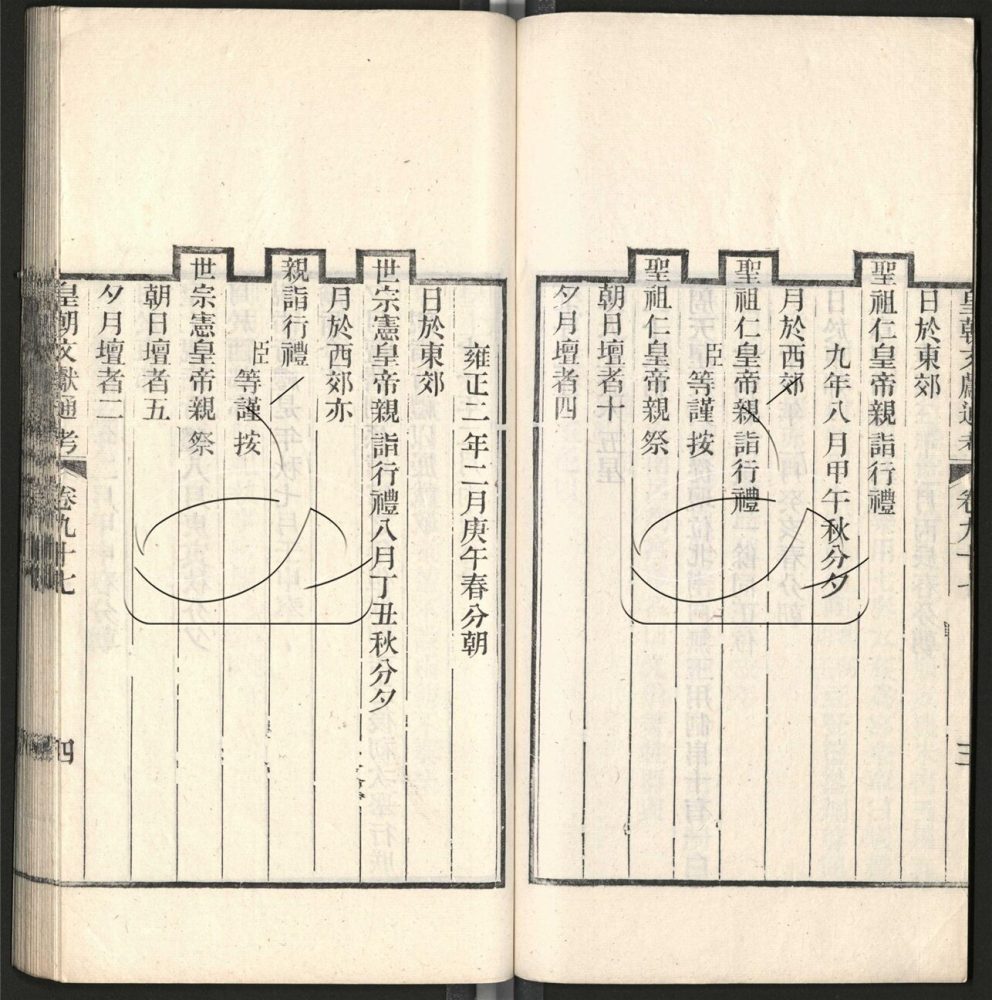 日於東郊
聖祖仁皇帝親詣行禮
九年八月甲午秋分夕
月於西郊
聖祖仁皇帝親詣行禮
臣等謹按
聖祖仁皇帝親祭
朝日壇者十
夕月壇者四
雍正二年二月庚午春分朝
日於東郊
世宗憲皇帝親詣行禮八月丁丑秋分夕
月於西郊亦
親詣行禮
臣等謹按
世宗憲皇帝親祭
朝日壇者五
夕月壇者二
皇朝文獻通考 卷九十七 四